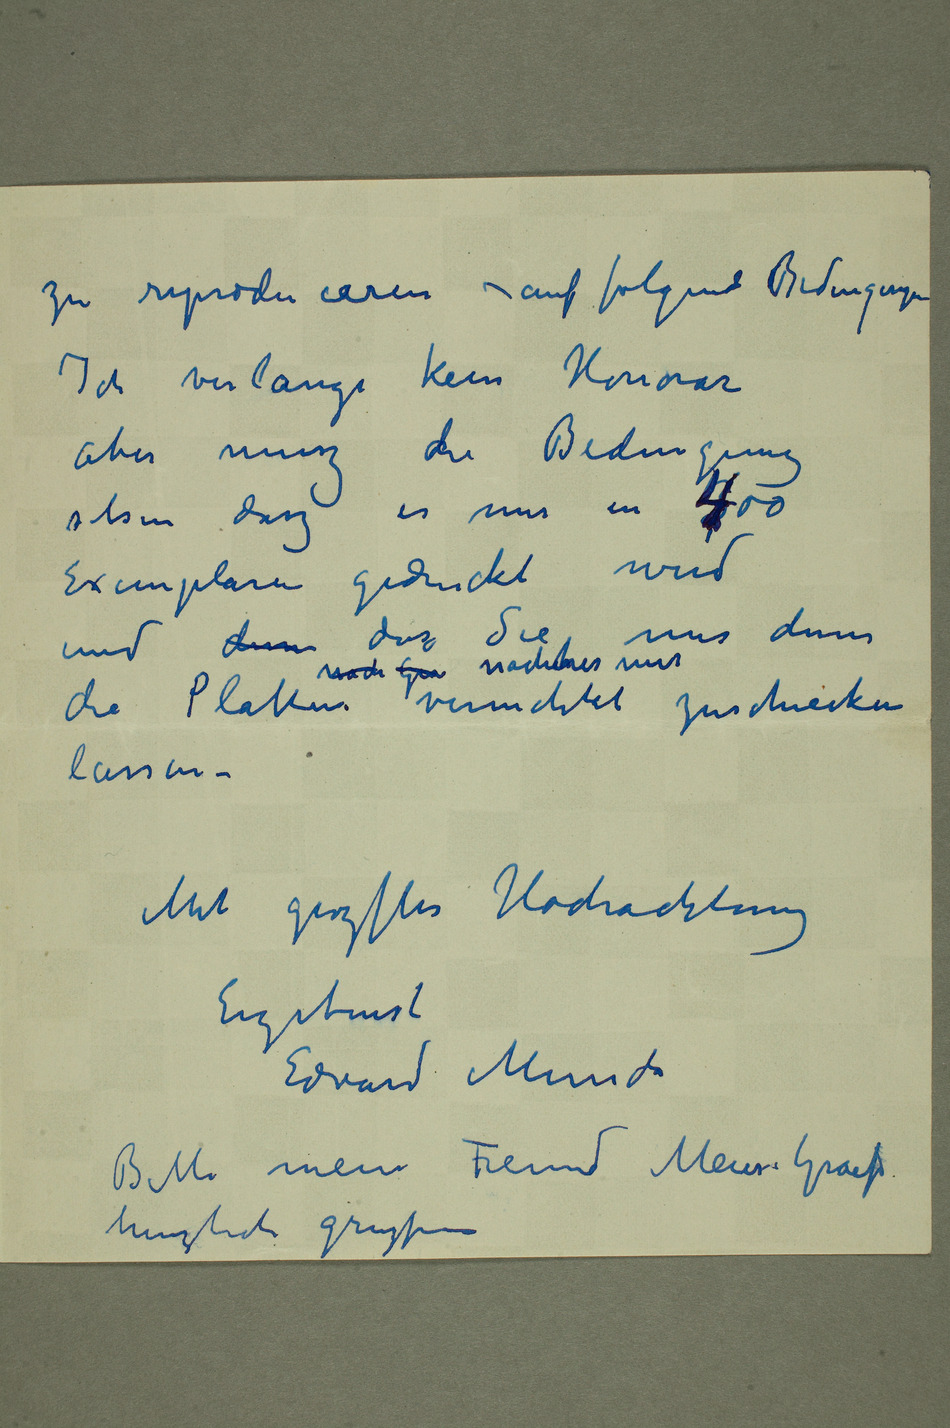 zu reproducieren – auf folgende Bedingungen
Ich verlange kein Honorar
aber musz die Bedingung
setsen dasz es nur in 400
Exemplaren gedruckt wird
und dann dasz Sie mir dann
noch nachher mir
die Platten vernichtet zuschicken
lassen –
Mit groszster Hochachtung
Ergebenst
Edvard Munch
Bitte mein Freund Meier-Graefe
herzlich gruszen